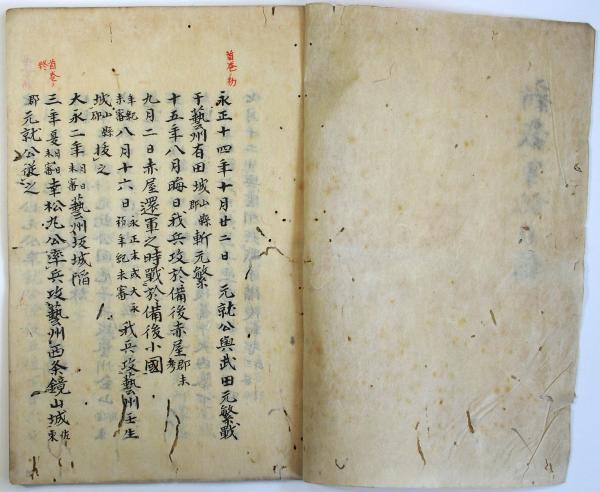 首巻初
永正十四年十月廿二日 元就公與武田元繁戰
于藝州有田城山縣郡斬元繁
十五年八月晦日我兵攻於備後赤屋郡未考
九月二日赤屋還軍之時戰於備後小國
年紀未審八月十六日永正末或大永初年紀未審我兵攻藝州壬生
城山縣郡拔之
大永二年月日未審藝州坂城陥
三年夏月日未審幸松丸公率兵攻藝州西条鏡山城佐東
郡元就公従之
首巻終